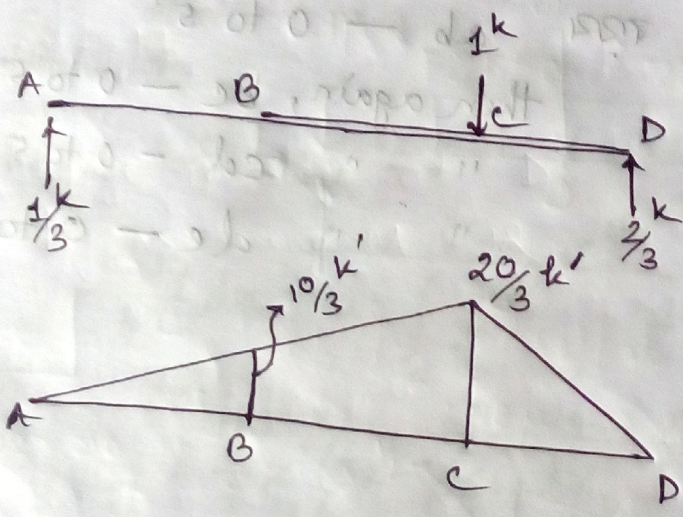 1k
A B C D
1/3 k 2/3 k
10/3 k' 20/3 k'
A B C D